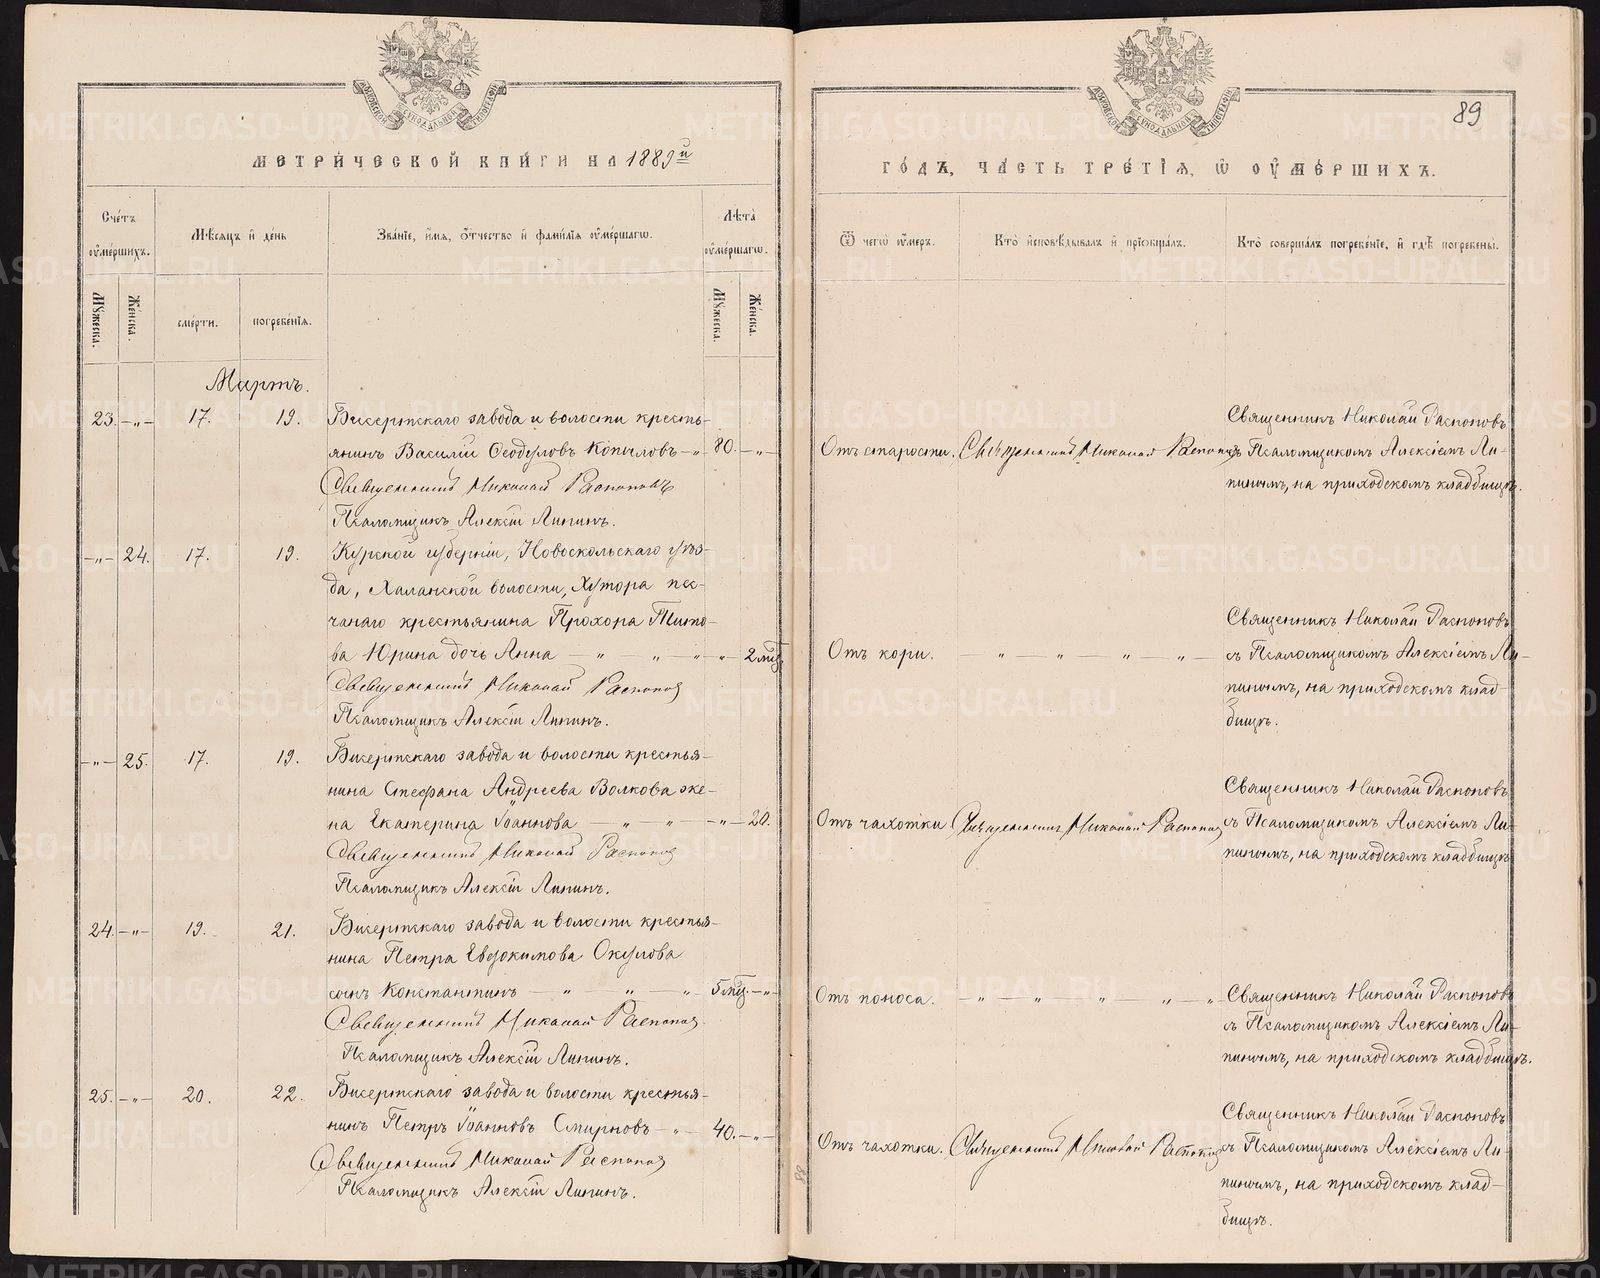 МЕТРИ́ЧЕСКОЙ КНИ́ГИ НА 1889й
Сче́тъ ᲂу҆ме́ршихъ.
Мѣ́сяцъ и҆ де́нь
Зва́нїе, и҆́мя, ѻ҆́тчество и҆ фами́лїя ᲂу҆ме́ршагѡ.
Лѣ́та ᲂу҆ме́ршагѡ.
Мꙋ́жеска.
Же́нска.
сме́рти.
погребе́нїя.
Мꙋ́жеска.
Же́нска.
Мартъ.
23. —„— 17. 19. Бисертскаго завода и волости кресть-
янинъ Василій Ѳеодуловъ Копыловъ —„— 80. —„—
Священникъ Николай Распоповъ
Псаломщикъ Алексій Липинъ.
—„— 24. 17. 19. Курской губерніи, Новоскольскаго уѣз-
да, Халанской волости, Хутора пес-
чанаго крестьянина Прохора Тито-
ва Юрина дочь Анна — „ — „ — „ — „ — 2 мѣс.
Священникъ Николай Распоповъ
Псаломщикъ Алексій Липинъ.
—„— 25. 17. 19. Бисертскаго завода и волости крестья-
нина Стефана Андреева Волкова же-
на Екатерина Іоаннова — „ — „ — „ — 20.
Священникъ Николай Распоповъ
Псаломщикъ Алексій Липинъ.
24. —„— 19. 21. Бисертскаго завода и волости крестья-
нина Петра Евдокимова Окулова
сынъ Константинъ — „ — „ — „ 5 мѣс. —„—
Священникъ Николай Распоповъ
Псаломщикъ Алексій Липинъ.
25. —„— 20. 22. Бисертскаго завода и волости крестья-
нинъ Петръ Іоанновъ Смирновъ —„— 40. —„—
Священникъ Николай Распоповъ
Псаломщикъ Алексій Липинъ.
89
ГО́ДЪ, ЧА́СТЬ ТРЕ́ТЇЯ, Ѡ҆ ОУ҆МЕ́РШИХЪ.
Ѿ чегѡ̀ ᲂу҆́меръ.
Кто̀ и҆сповѣ́дывалъ и҆ прїѡбща́лъ.
Кто̀ соверша́лъ погребе́нїе, и҆ гдѣ̀ погребены̀.
Священникъ Николай Распоповъ
Отъ старости. Священникъ Николай Распоповъ съ Псаломщикомъ Алексіемъ Ли-
пинымъ, на приходскомъ кладбищѣ.
Священникъ Николай Распоповъ
Отъ кори. „ — „ — „ — „ — съ Псаломщикомъ Алексіемъ Ли-
пинымъ, на приходскомъ клад-
бищѣ.
Священникъ Николай Распоповъ
Отъ чахотки Священникъ Николай Распоповъ съ Псаломщикомъ Алексіемъ Ли-
пинымъ, на приходскомъ кладбищѣ
Отъ поноса. — „ — „ — „ — „ — „ Священникъ Николай Распоповъ
съ Псаломщикомъ Алексіемъ Ли-
пинымъ, на приходскомъ кладбищѣ.
Священникъ Николай Распоповъ
Отъ чахотки. Священникъ Николай Распоповъ съ Псаломщикомъ Алексіемъ Ли-
пинымъ, на приходскомъ клад-
бищѣ.
88
METRIKI.GASO-URAL.RU